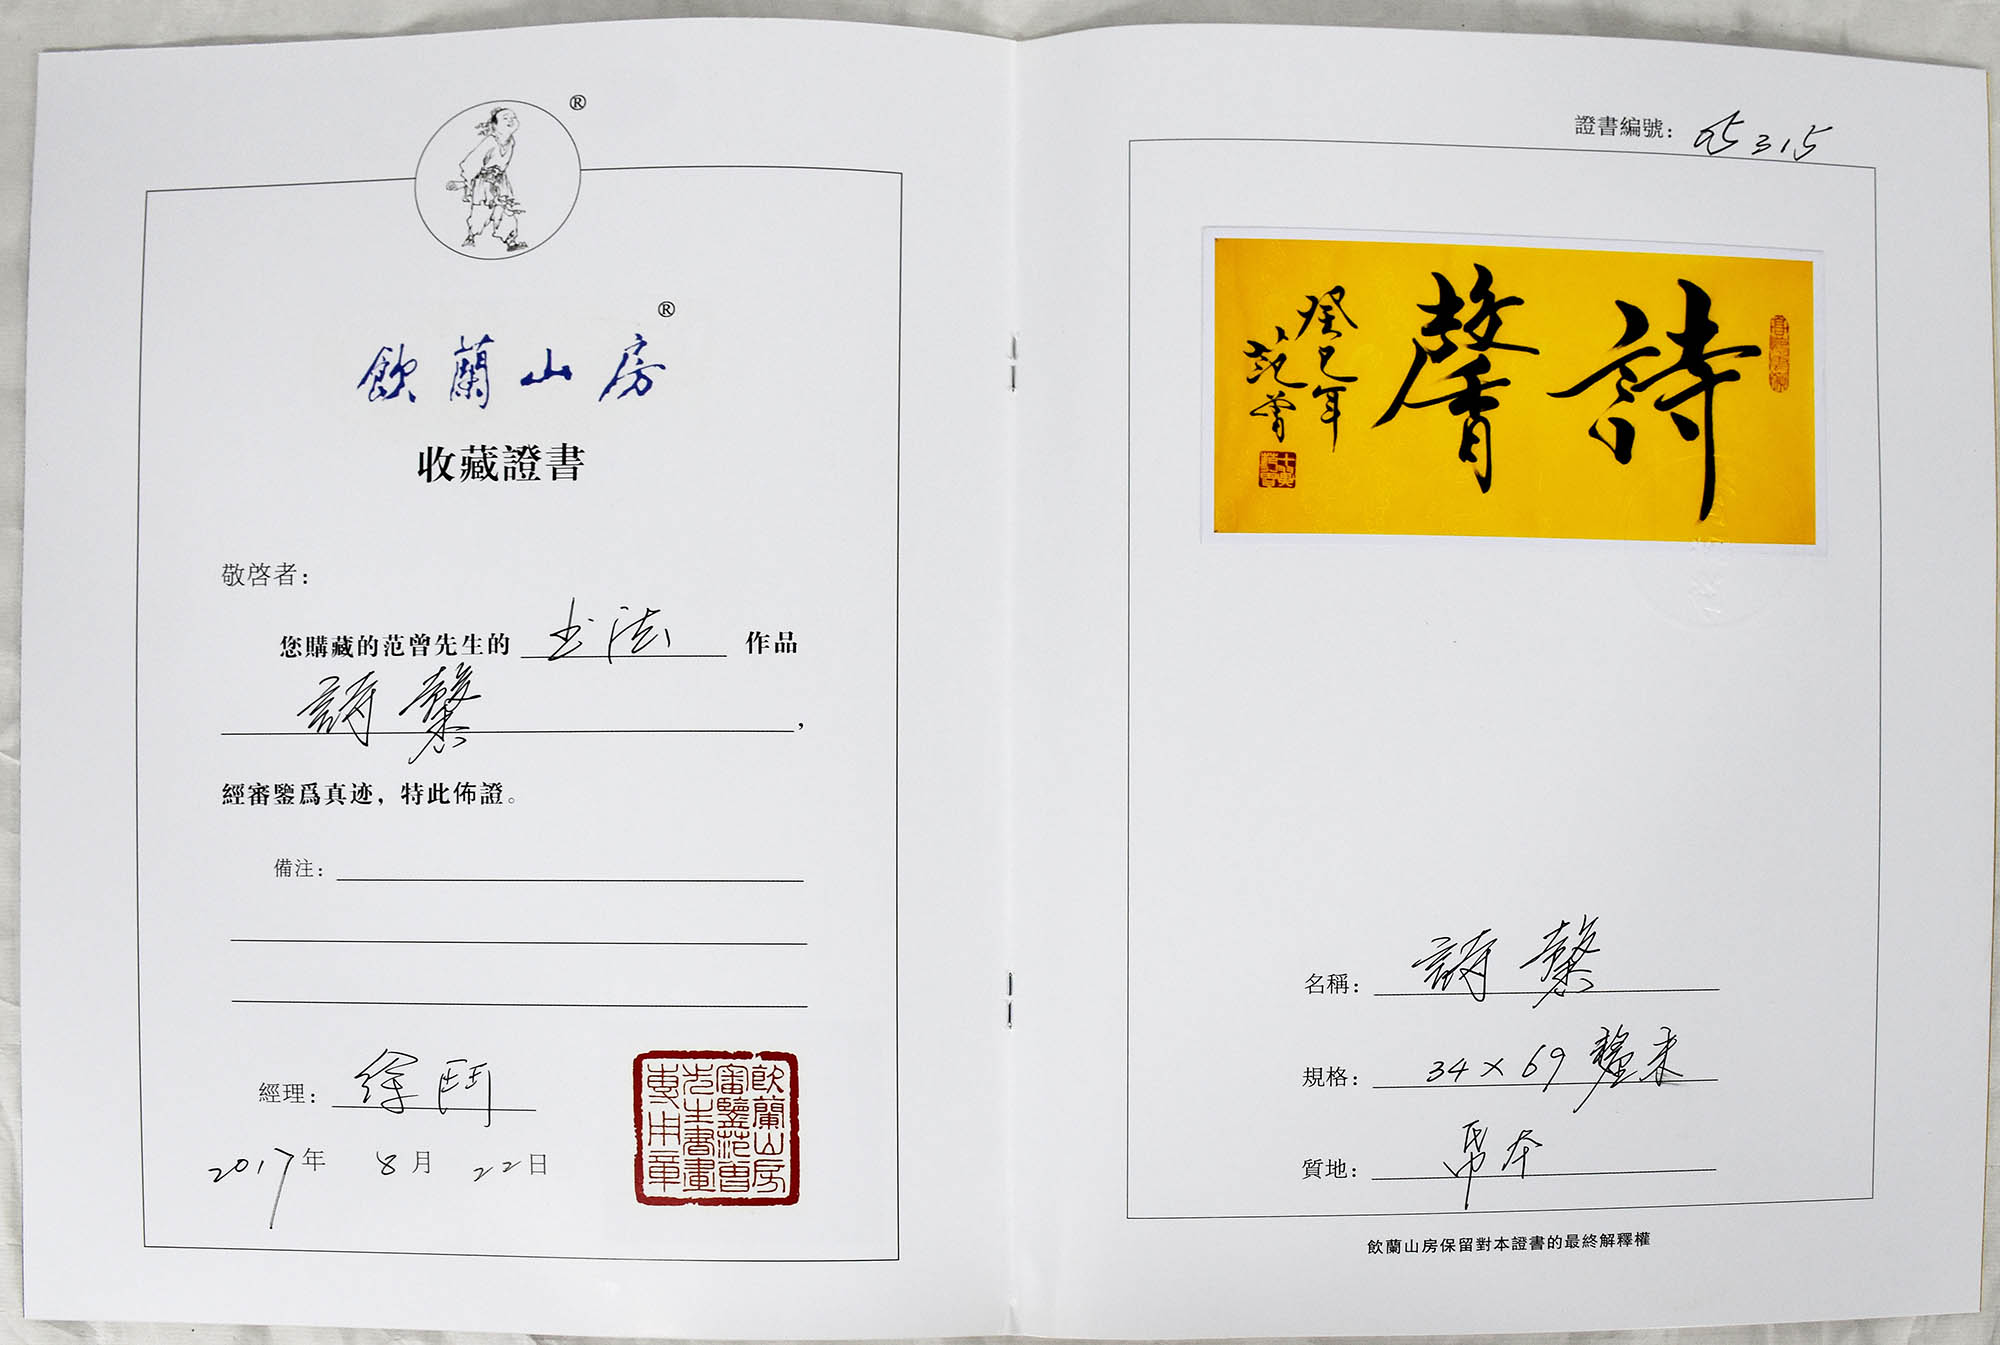 ®
飲蘭山房®
收藏證書
敬啓者：
您購藏的范曾先生的 书法 作品
詩馨，
經審鑒爲真迹，特此佈證。
備注：
經理：
2017年 8月 22日
飲蘭山房
審鑒范曾
先生書畫
專用章
證書編號：
詩馨
癸巳年
范曾
名稱：詩馨
規格：34×69釐米
質地：帛本
飲蘭山房保留對本證書的最終解釋權